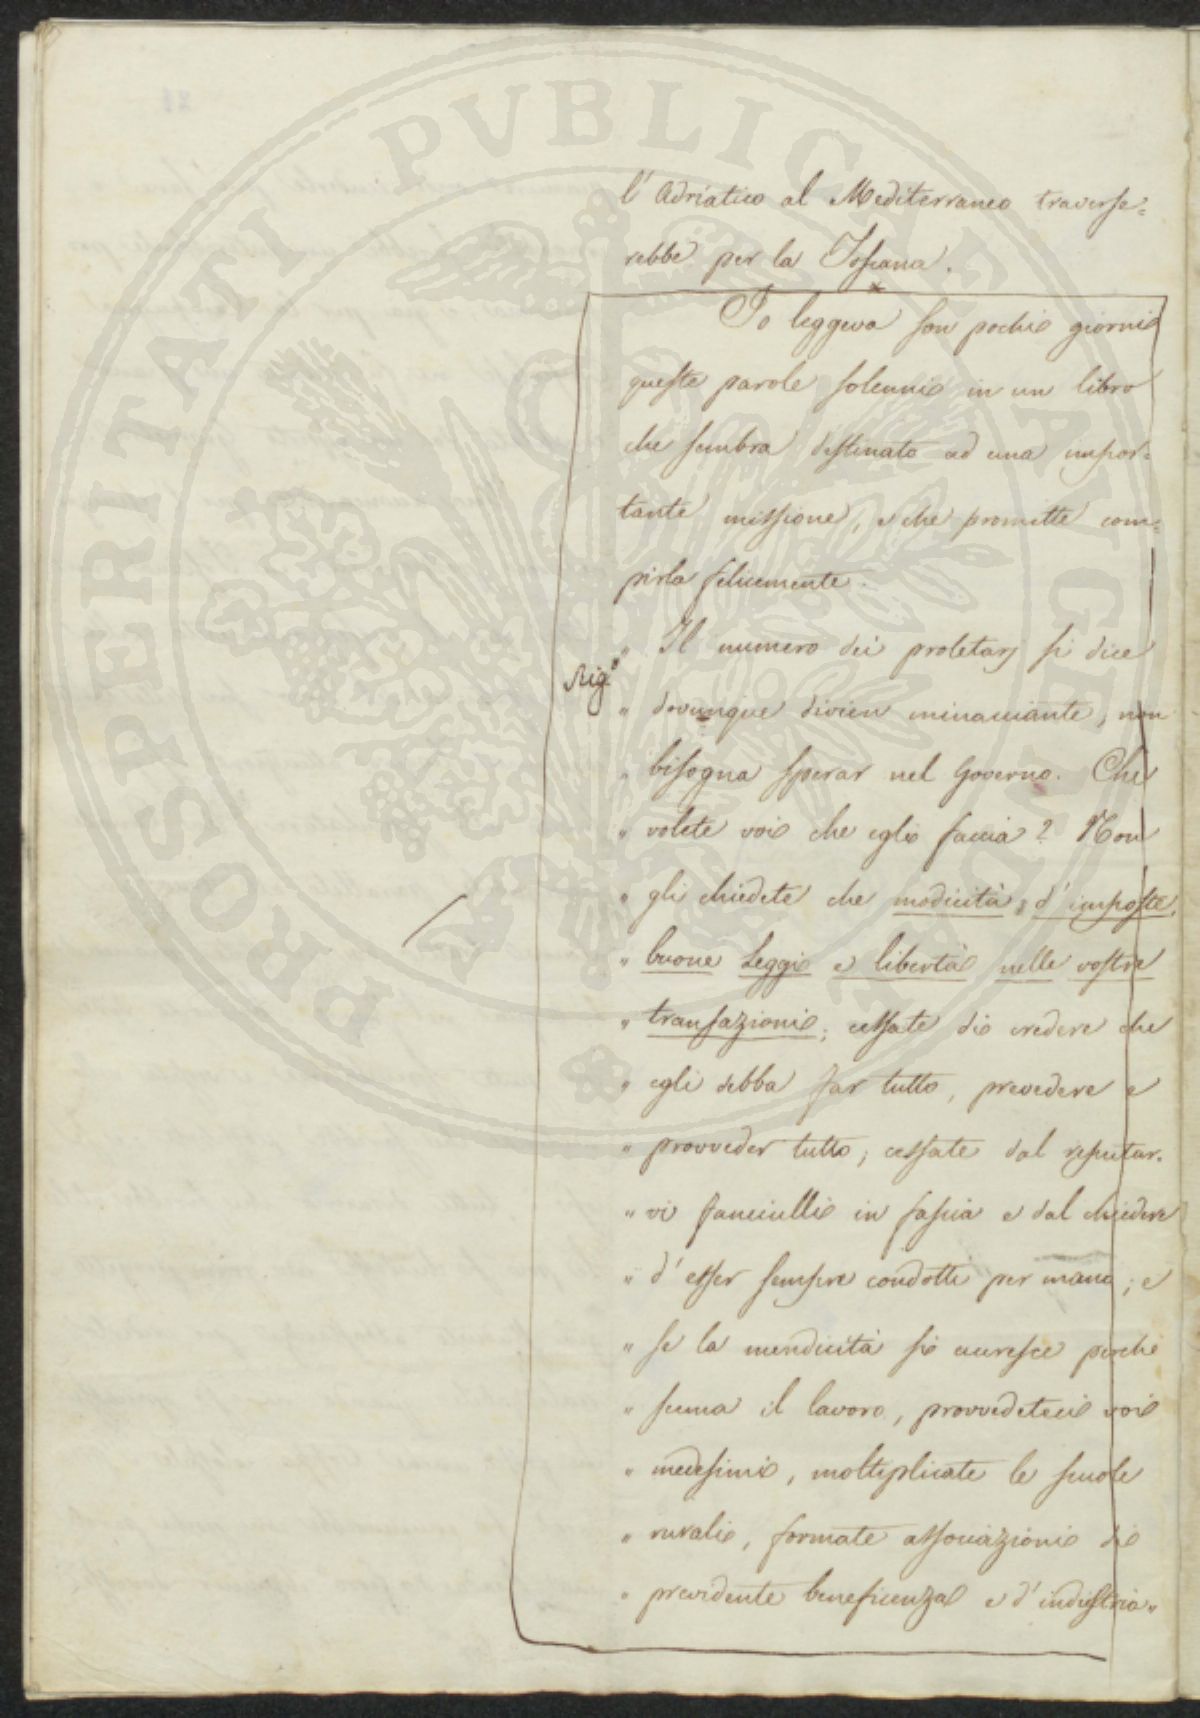 PROSPERITATI PVBLICAE AVGENDAE
l'Adriatico al Mediterraneo traverse=
rebbe per la Toscana.
Io leggeva son pochi giorni
queste parole solenni in un libro
che sembra destinato ad una impor=
tante missione, e che promette com=
pirla felicemente.
" Il numero dei proletarj si dice
" dovunque divien minacciante, non
" bisogna sperar nel Governo. Che
" volete voi che egli faccia? Non
" gli chiedete che modicità d'imposte,
" buone Leggi e libertà nelle vostre
" transazioni; cessate di credere che
" egli debba far tutto, prevedere e
" provveder tutto; cessate dal reputar=
" vi fanciulli in fascia e dal chiedere
" d'esser sempre condotti per mano; e
" se la mendicità si accresce perchè
" scema il lavoro, provvedeteci voi
" medesimi, moltiplicate le scuole
" rurali, formate associazioni di
" previdente beneficenza e d'industria"